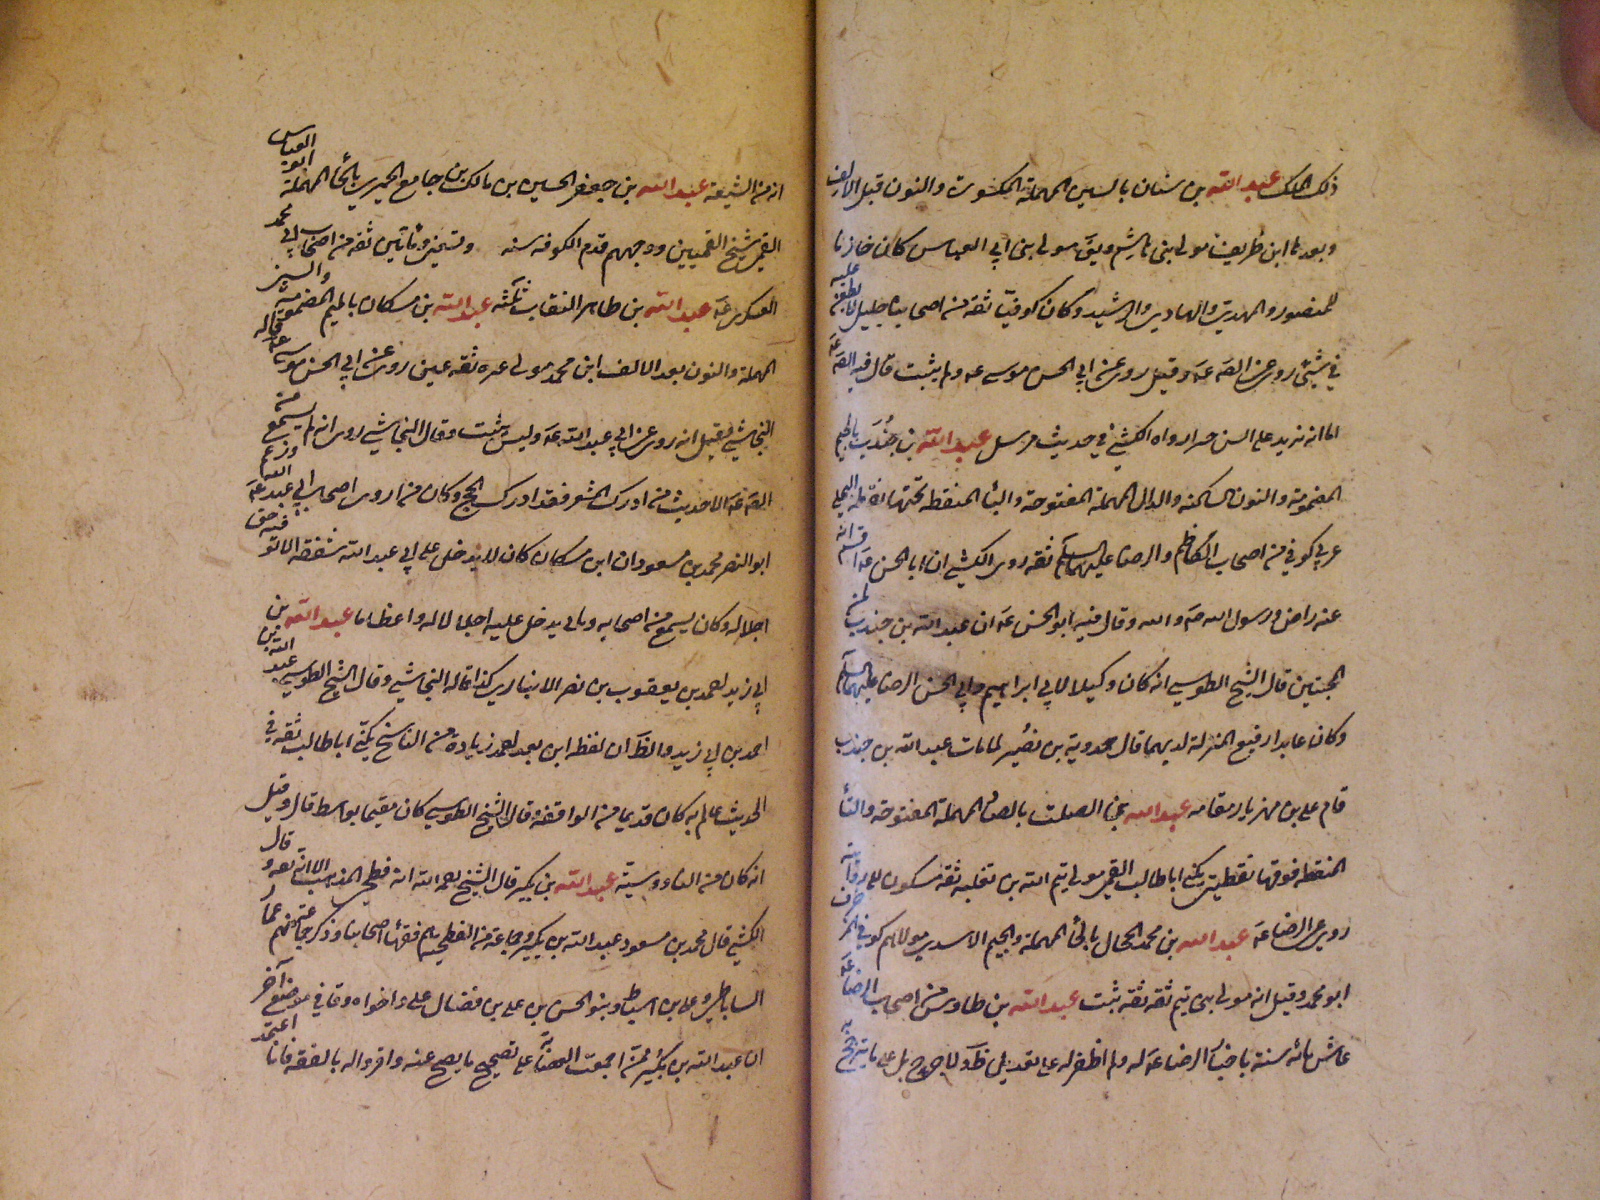 ذلك الملك عبد الله بن سنان بالسين المهملة المكسورة والنون قبل الالف
وبعدها ابن طريف مولى بنى هاشم ويق مولى بنى ابي العباس كان خازنا
للمنصور والمهدي والهادي والرشيد وكان كوفيا ثقة من اصحابنا جليل لا يطعن عليه
في شيئ روى عن الصه عه وقيل روى عن ابي الحسن موسى عه ولم يثبت قال فيه الصه عه
اما انه يزيد على السن خيرا رواه الكشي في حديث مرسل عبد الله بن جُندَب بالجيم
المضمومة والنون الساكنة والدال المهملة المفتوحة والبا المنقطه تحتها نقطه البجلي
عربي كوفي من اصحاب الكاظم والرضا عليهما السلام ثقه روى الكشي ان ابا الحسن عه اقسم انه
عنه راض ورسول الله صه والله وقال فيه ابو الحسن عه ان عبد الله بن جندب لمن
المخبتين قال الشيخ الطوسي انه كان وكيلا لابي ابراهيم وابي الحسن الرضا عليهما السلام
وكان عابدا رفيع المنزلة لديهما قال حمدوية بن نصُير لما مات عبد الله بن جندب
قام على بن مهزيار مقامه عبد الله بن الصلت بالصاد المهملة المفتوحة والتا
المنقطه فوقها نقطتين يكنى ابا طالب القمى مولى تيم الله بن ثعلبه ثقه مسكون الى روايته
روى عن الرضا عه عبد الله بن محمد الحجال بالحا المهملة والجيم الاسدي مولاهم كوفي المزخرف
ابو محمد وقيل انه مولى بنى تيم ثقه ثقه ثبت عبد الله بن طاوس من اصحاب الرضا عه
عاش مائه سنة باخبار الرضا عه له ولم اظفر له على تعديل ظ ولا جرح بل على ما يترجح به
انه من الشيعة عبد الله بن جعفر الحسين بن مالك بن جامع الحميري بالحا المهملة ابو العباس
القمى شيخ القميين ووجههم قدم الكوفه سنه وتسعين ومأتين ثقه من اصحاب ابي محمد
العسكرى عه عبد الله بن طاهر النقاب عبد الله بن مسكان بالميم المضمومة والسين
المهملة والنون بعد الالف ابن محمد مولى عنزه ثقه عين روى عن ابي الحسن موسى عه قاله
النجاشي وقيل انه روى عن ابي عبد الله عه وليس بثبت وقال النجاشي روى انه لم يسمع من
الصه عه الا حديث من ادرك المشعر فقد ادرك الحج وكان من اروى اصحاب ابي عبد الله عه وزعم
ابو النصر محمد بن مسعود ان ابن مسكان كان لا يدخل على ابي عبد الله شفقه الا يوفيه حق
اجلاله وكان يسمع من اصحابه ويابى يدخل عليه اجلالا له واعظاما عبد الله بن
ابي زيد احمد بن يعقوب بن نصر الانباري كذا قاله النجاشي وقال الشيخ الطوسي عبد الله بن
احمد بن ابي زيد والظ ان لفظه ابن بعد احمد زيادة من الناسخ يكنى ابا طالب ثقه في
الحديث عالم به كان قديما من الواقفه وقال الشيخ الطوسي كان مقيما بواسط قال وقيل
انه كان من الناووسية عبد الله بن بكير قال الشيخ رحمه الله انه فطحى المذهب الا انه ثقه وقال
الكشي قال محمد بن مسعود عبد الله بن بكير وجماعة من الفطحيه هم فقها اصحابنا وذكر جماعة منهم عمار
الساباطى وعلى بن اسباط وبنو الحسن بن على بن فضال على واخواه وقا في موضع آخر
ان عبد الله بن بكُير ممن اجمعت العصابة على تصحيح ما يصح عنه واقروا له بالفقه فانا اعتمد